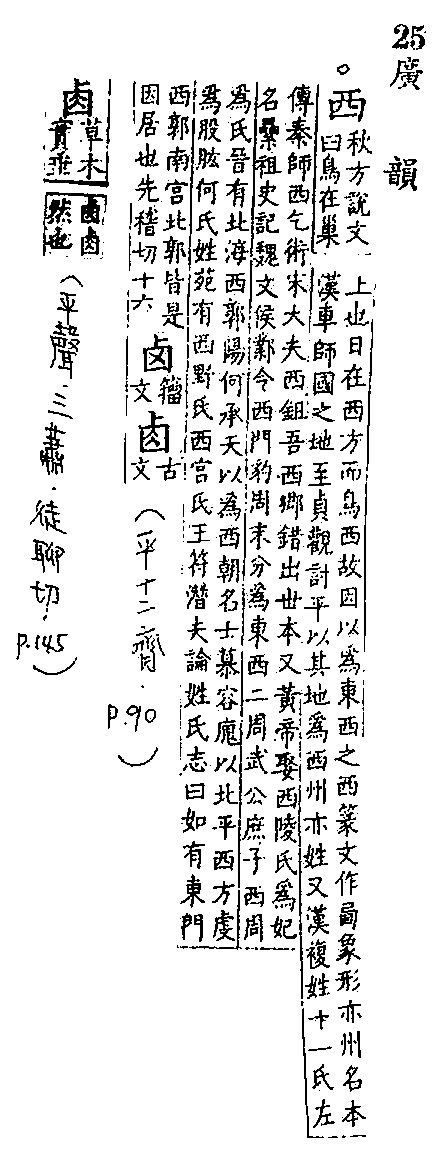 25
廣韻
○西秋方說文
曰鳥在巢
上也日在西方而鳥西故因以為東西之西篆文作象形亦州名本
漢車師國之地至貞觀討平以其地為西州亦姓又漢複姓十一氏左
傳秦師西乞術宋大夫西鉏吾西鄉錯出世本又黃帝娶西陵氏為妃
名纍祖史記魏文侯鄴令西門豹周末分為東西二周武公庶子西周
為氏晉有北海西郭陽何承天以為西朝名士慕容廆以北平西方虔
為股肱何氏姓苑有西野氏西宮氏王符潛夫論姓氏志曰如有東門
西郭南宮北郭皆是
因居也先稽切十六
卥籀文
卤古文
(平十二齊.p.90)
卤草木實垂
卤卤然也
(平聲.三蕭.徒聊切.p.145)